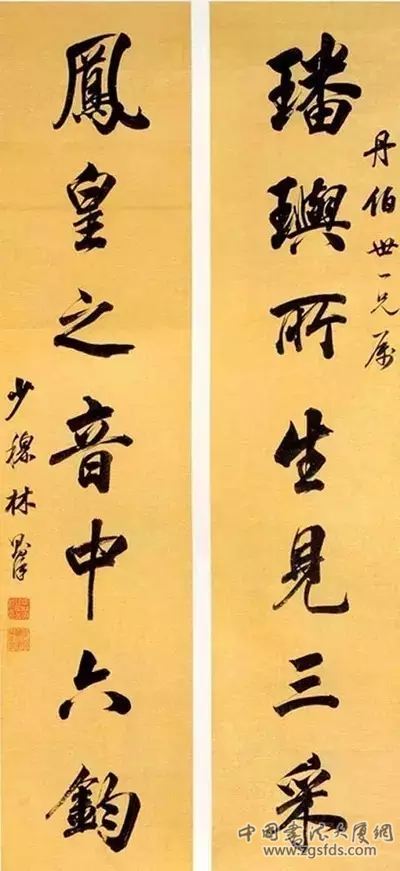 丹伯世一兄屬
璠璵所生見三采
鳳皇之音中六鈞
少穆林則徐
中国書法大厦網
www.zgsfds.com